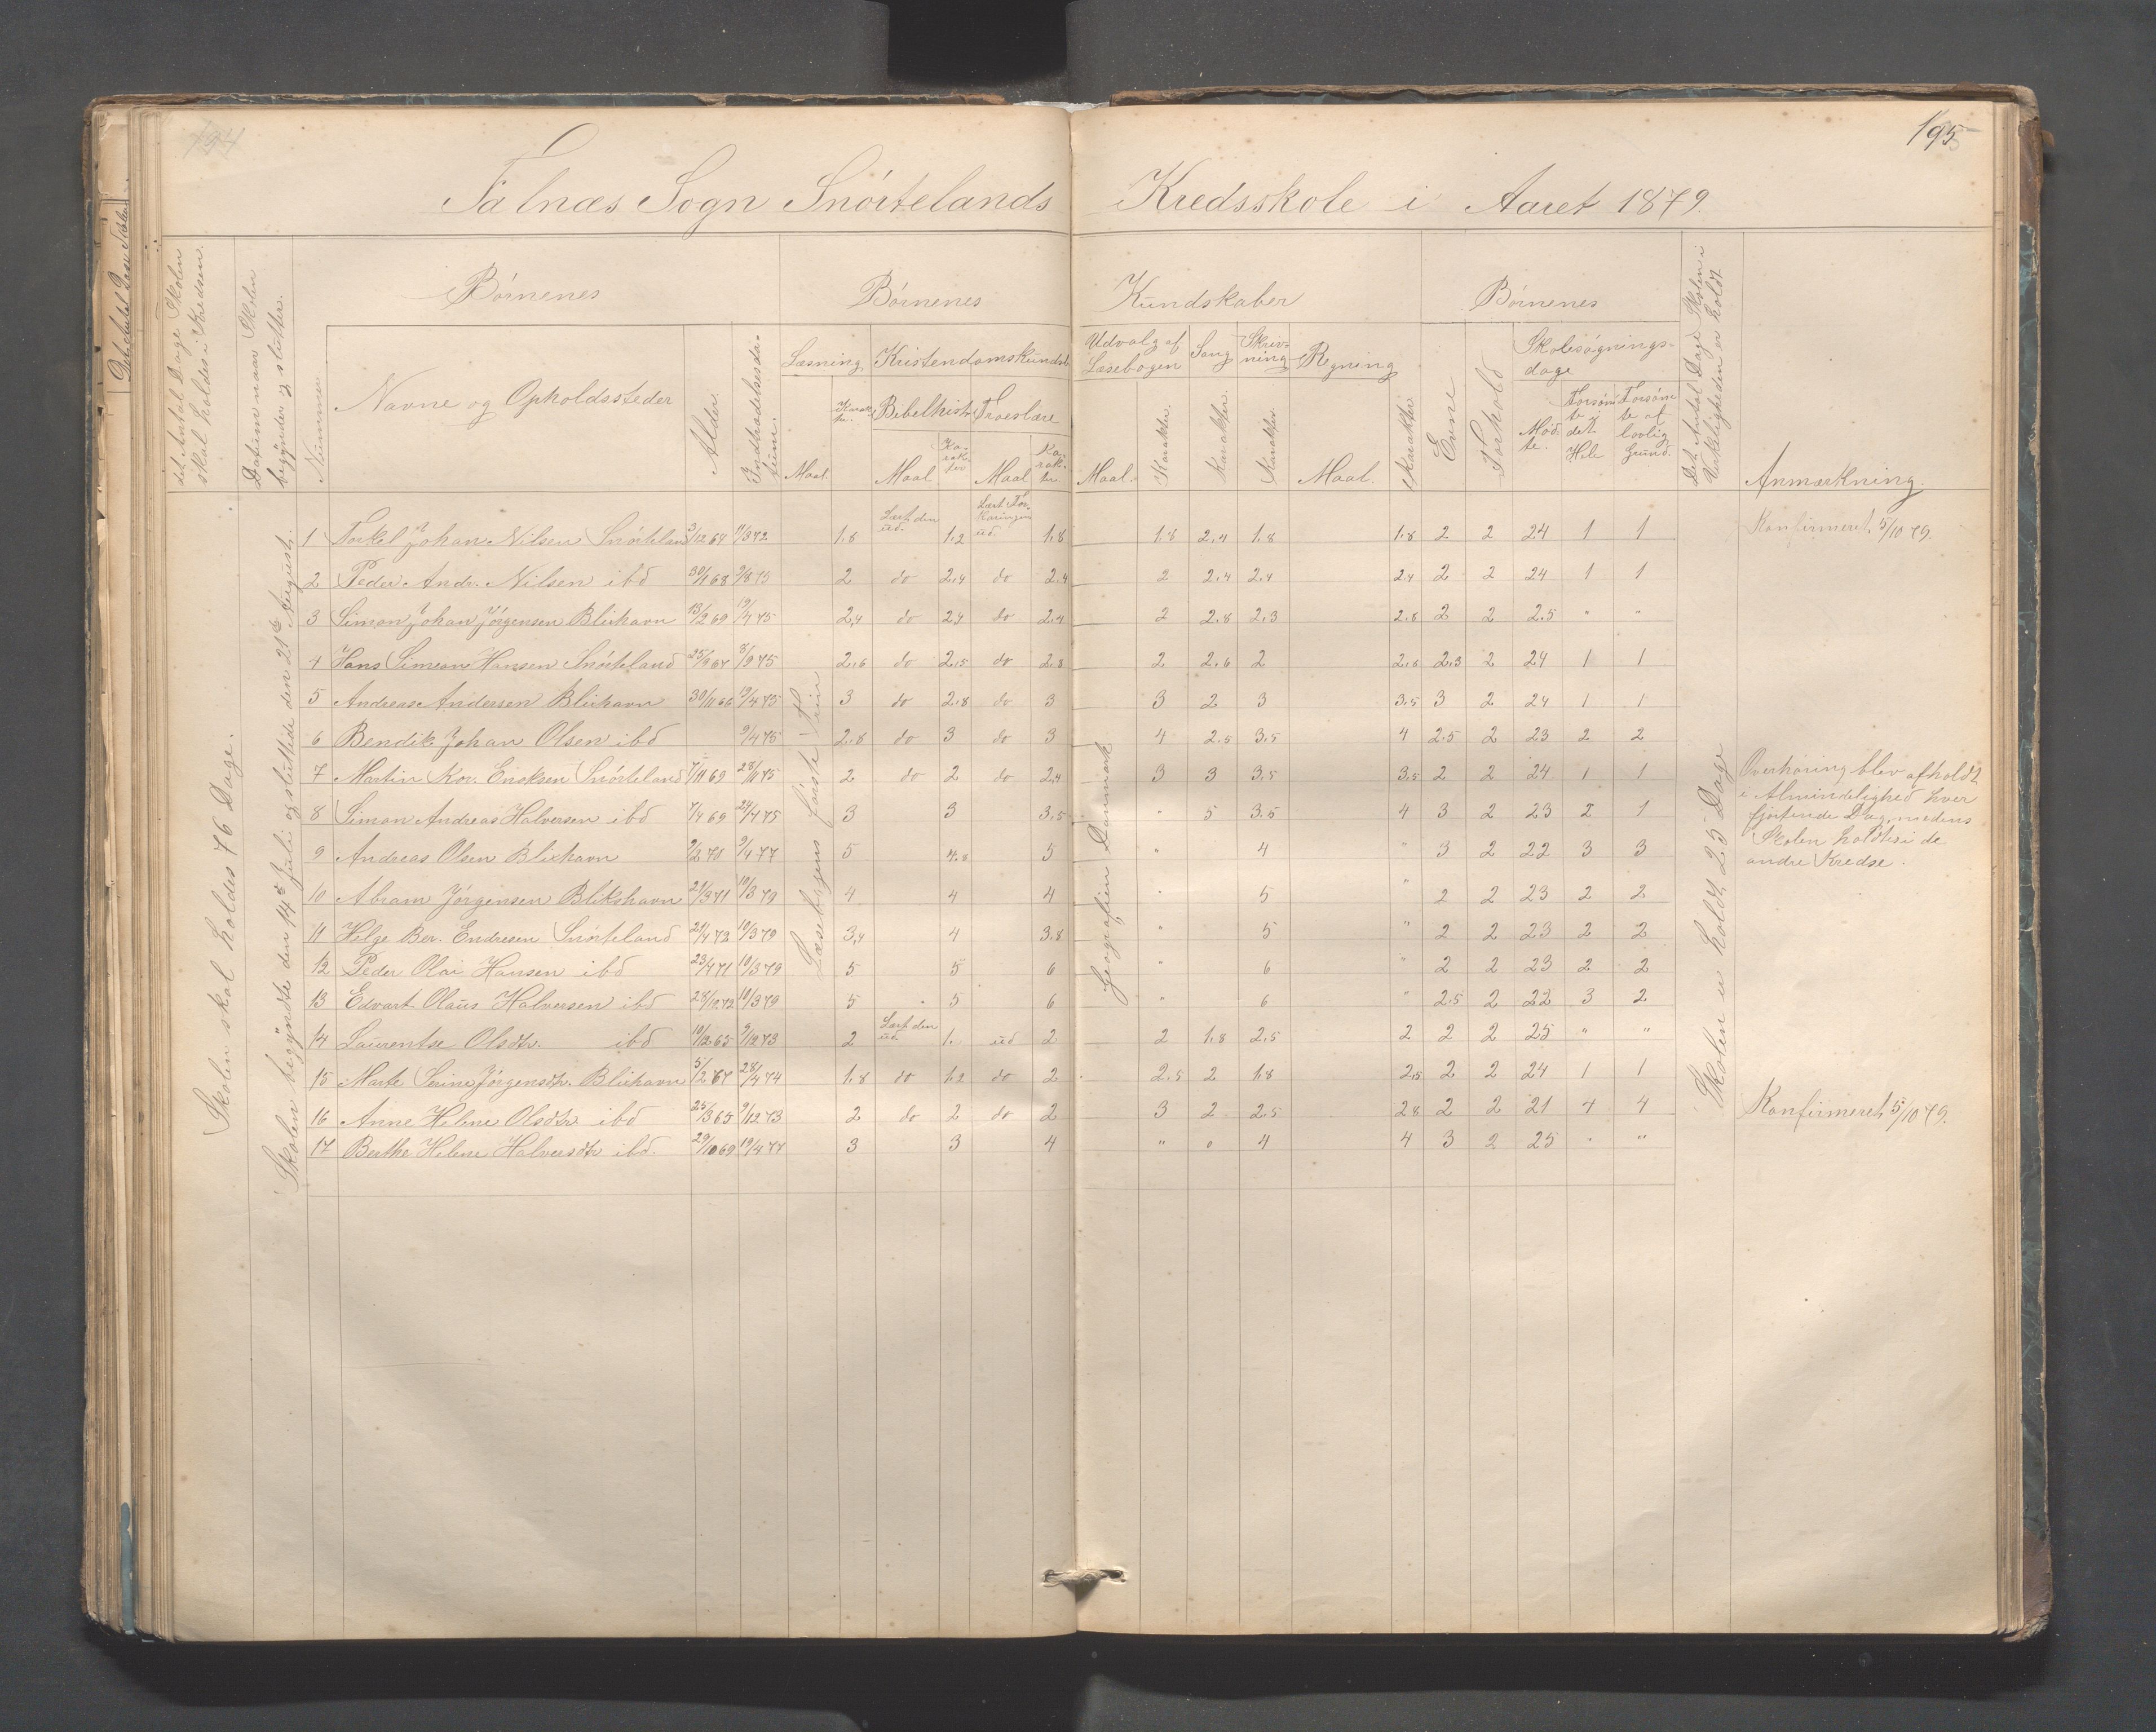 194
195
Falnæs Sogn Snørtelands Kredsskole i Aaret 1879.
det Antal Dage Skolen skal holdes i Kredsen.
Datum naar Skolen begynder og slutter.
Nummer
Børnenes
Navne og Opholdssteder
Alder.
Indtrædelsesdatum.
Børnenes Kundskaber
Læsning
Maal.
Kristendomskundsk.
Bibelhist.
Maal
Troeslære
Maal
Udvalg af Læsebogen
Maal.
Karakter.
Sang
Karakter.
Skrivning
Karakter.
Regning
Maal.
Karakter.
Børnenes
Evne
Forhold
Skolesøgningsdage
Mødte.
Forsømte i det Hele
Forsømte af lovlig Grund.
Det Antal Dage Skolen i Virkeligheden er holdt
Anmærkning.
Skolen skal holdes 76 Dage.
Skolen begyndte den 14de Juli og sluttede den 21de August.
Læsebogens første Trin
Geografien Danmark
Skolen er holdt 25 Dage
1 Torkel Johan Nilsen Snørteland 3/12 64 11/3 72 1.8 Lært den ud. 1.2 Lært Forklaringen ud 1.8 1.8 2.4 1.8 1.8 2 2 24 1 1 Konfirmeret 5/10 79.
2 Peder Andr. Nilsen ibd 30/1 68 9/8 75 2 do 2,4 do 2.4 2 2.4 2.4 2.4 2 2 24 1 1
3 Simon Johan Jørgensen Blixhavn 13/2 69 19/4 75 2,4 do 2,4 do 2.4 2 2.8 2.3 2.8 2 2 2.5 " "
4 Hans Simeon Hansen Snørteland 25/9 67 3/9 75 2.6 do 2.5 do 2.8 2 2.6 2 2.8 2.3 2 24 1 1
5 Andreas Andersen Blixhavn 30/11 66 19/4 75 3 do 2.8 do 3 3 2 3 3.5 3 2 24 1 1
6 Bendik Johan Olsen ibd 9/4 75 2.8 do 3 do 3 4 2.5 3.5 4 2.5 2 23 2 2
7 Martin Kor. Eriksen Snørteland 7/11 69 28/11 75 2 do 2 do 2.4 3 3 3.5 3.5 2 2 24 1 1
8 Simon Andreas Halversen ibd 7/4 69 24/4 75 3 3 3.5 " 5 3.5 4 3 2 23 2 1
9 Andreas Olsen Blixhavn 9/2 70 9/4 77 5 4.8 5 " 4 " 3 2 22 3 3
10 Abram Jørgensen Blikshavn 21/3 71 10/3 79 4 4 4 " 5 " 2 2 23 2 2
11 Helge Ber. Endresen Snørteland 21/4 72 10/3 79 3,4 4 3.8 " 5 " 2 2 23 2 2
12 Peder Olai Hansen ibd 23/4 71 10/3 79 5 5 6 " 6 " 2 2 23 2 2
13 Edvart Olaus Halversen ibd 28/10 72 10/3 79 5 5 6 " 6 " 2.5 2 22 3 2
14 Laurentse Olsdtr. ibd 10/12 65 9/12 73 2 Lært den ud. 1. ud 2 2 1.8 2.5 2 2 2 25 " "
15 Marte Serine Jørgensdtr. Blixhavn 5/2 67 28/4 74 1.8 do 1.2 do 2 2.5 2 1.8 2.5 2 2 24 1 1
16 Anne Helene Olsdtr ibd 25/3 65 9/12 73 2 do 2 do 2 3 2 2.5 2.8 2 2 21 4 4 Konfirmeret 5/10 79.
17 Berthe Helene Halversdtr ibd. 29/10 69 19/4 77 3 3 4 " 0 4 4 3 2 25 " "
Overhøring blev afholdt
i Almindelighed hver
fjortende Dag, medens
Skolen holdtes i de
andre Kredse.